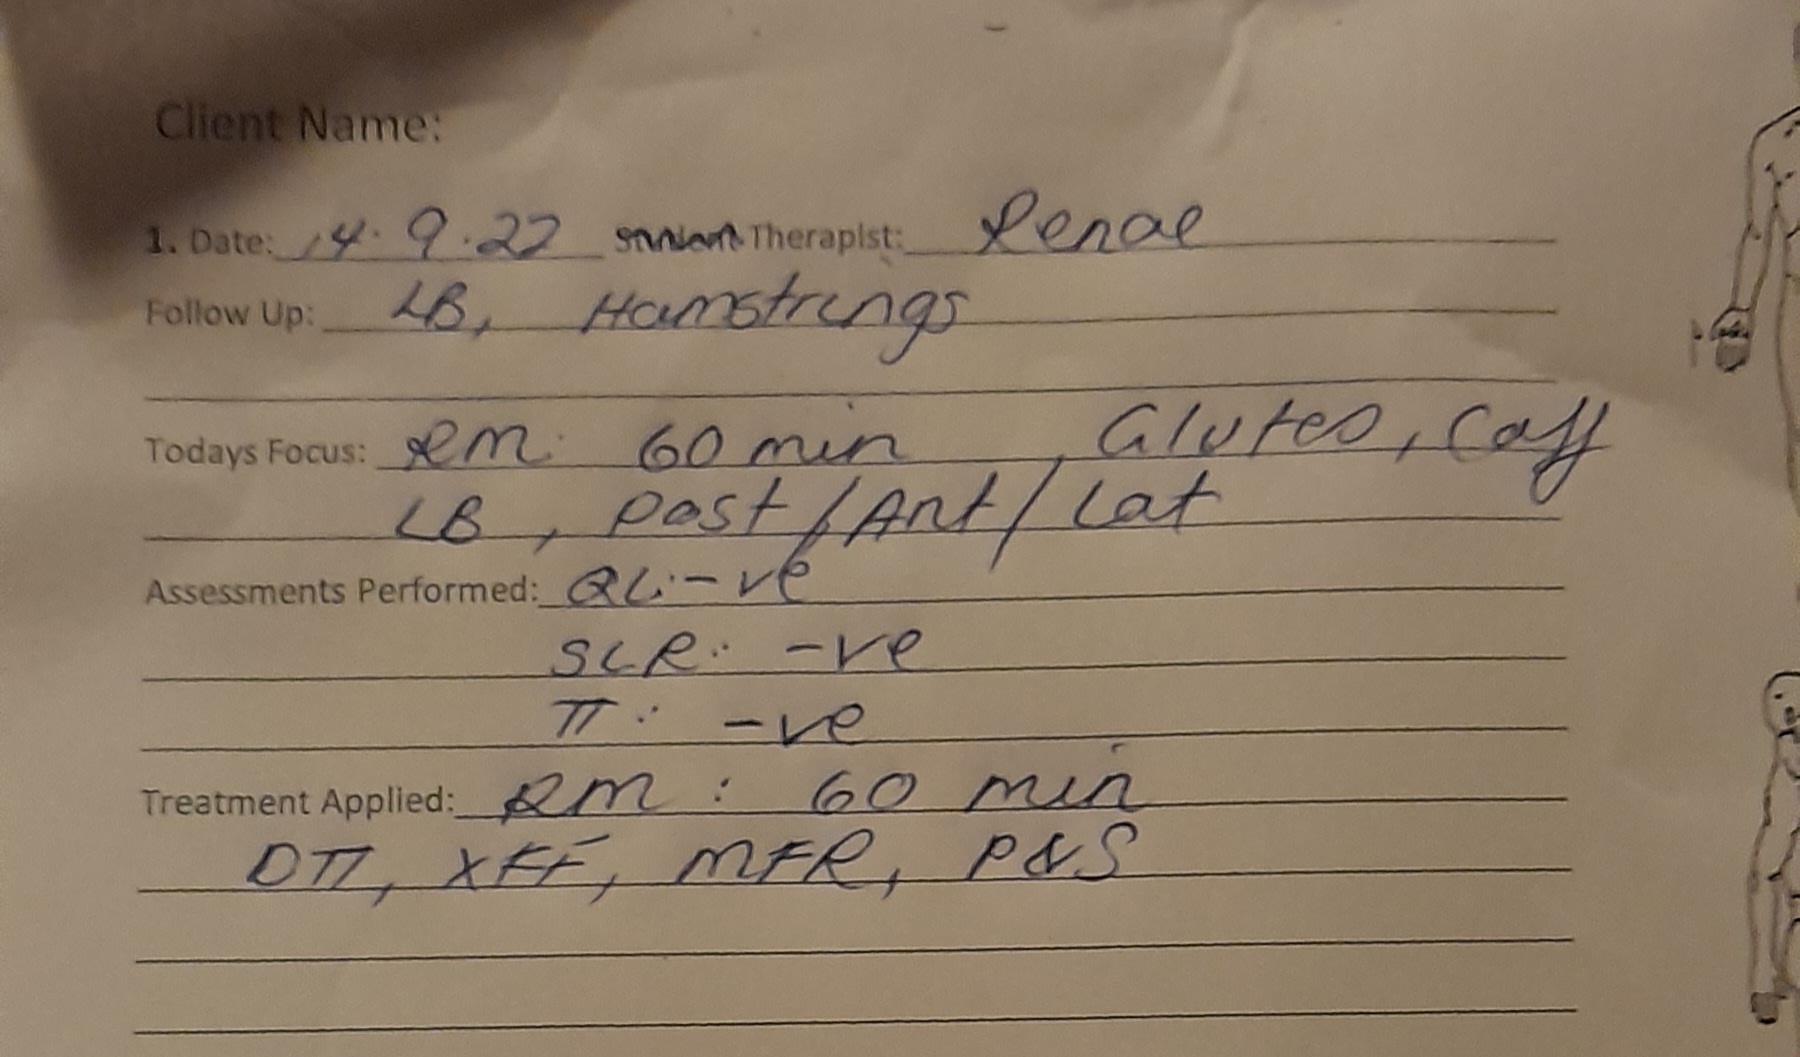 Client Name:
1. Date: 14.9.22 Student Therapist: Renae
Follow Up: LB, Hamstrings
Todays Focus: RM: 60 min, Glutes, Calf
LB, Post/Ant/Lat
Assessments Performed: QL: -ve
SLR: -ve
TT: -ve
Treatment Applied: RM: 60 min
DTT, XFF, MFR, P&S